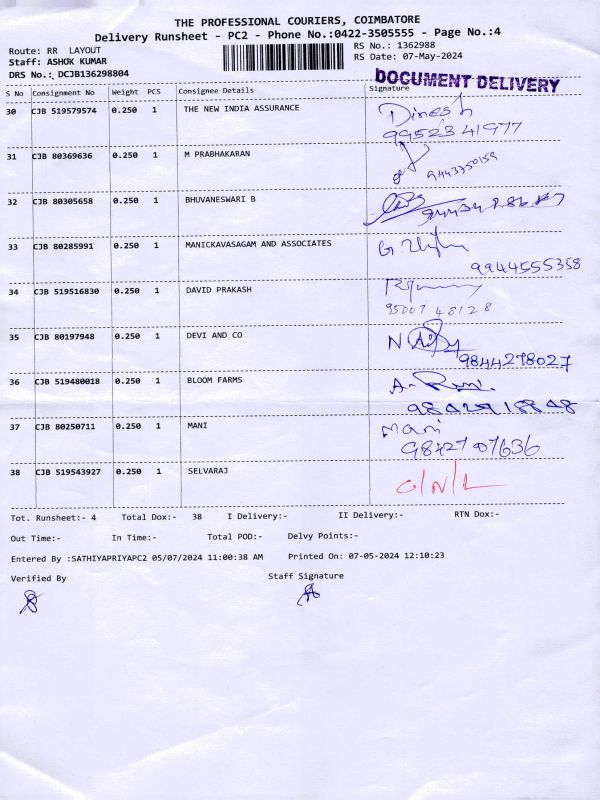 THE PROFESSIONAL COURIERS, COIMBATORE
Delivery Runsheet - PC2 - Phone No.:0422-3505555 - Page No.:4
Route: RR LAYOUT
RS No.: 1362988
Staff: ASHOK KUMAR
RS Date: 07-May-2024
DRS No.: DCJB136298804
DOCUMENT DELIVERY
S No Consignment No Weight PCS Consignee Details Signature
30 CJB 519579574 0.250 1 THE NEW INDIA ASSURANCE Dinesh
9952341977
31 CJB 80369636 0.250 1 M PRABHAKARAN
9443350159
32 CJB 80305658 0.250 1 BHUVANESWARI B
33 CJB 80285991 0.250 1 MANICKAVASAGAM AND ASSOCIATES G.
9944555358
34 CJB 519516830 0.250 1 DAVID PRAKASH
95007 48128
35 CJB 80197948 0.250 1 DEVI AND CO N
9844278027
36 CJB 519480018 0.250 1 BLOOM FARMS
37 CJB 80250711 0.250 1 MANI Mani
9842707636
38 CJB 519543927 0.250 1 SELVARAJ C/N/L
Tot. Runsheet:- 4 Total Dox:- 38 I Delivery:- II Delivery:- RTN Dox:-
Out Time:- In Time:- Total POD:- Delvy Points:-
Entered By :SATHIYAPRIYAPC2 05/07/2024 11:00:38 AM Printed On: 07-05-2024 12:10:23
Verified By Staff Signature